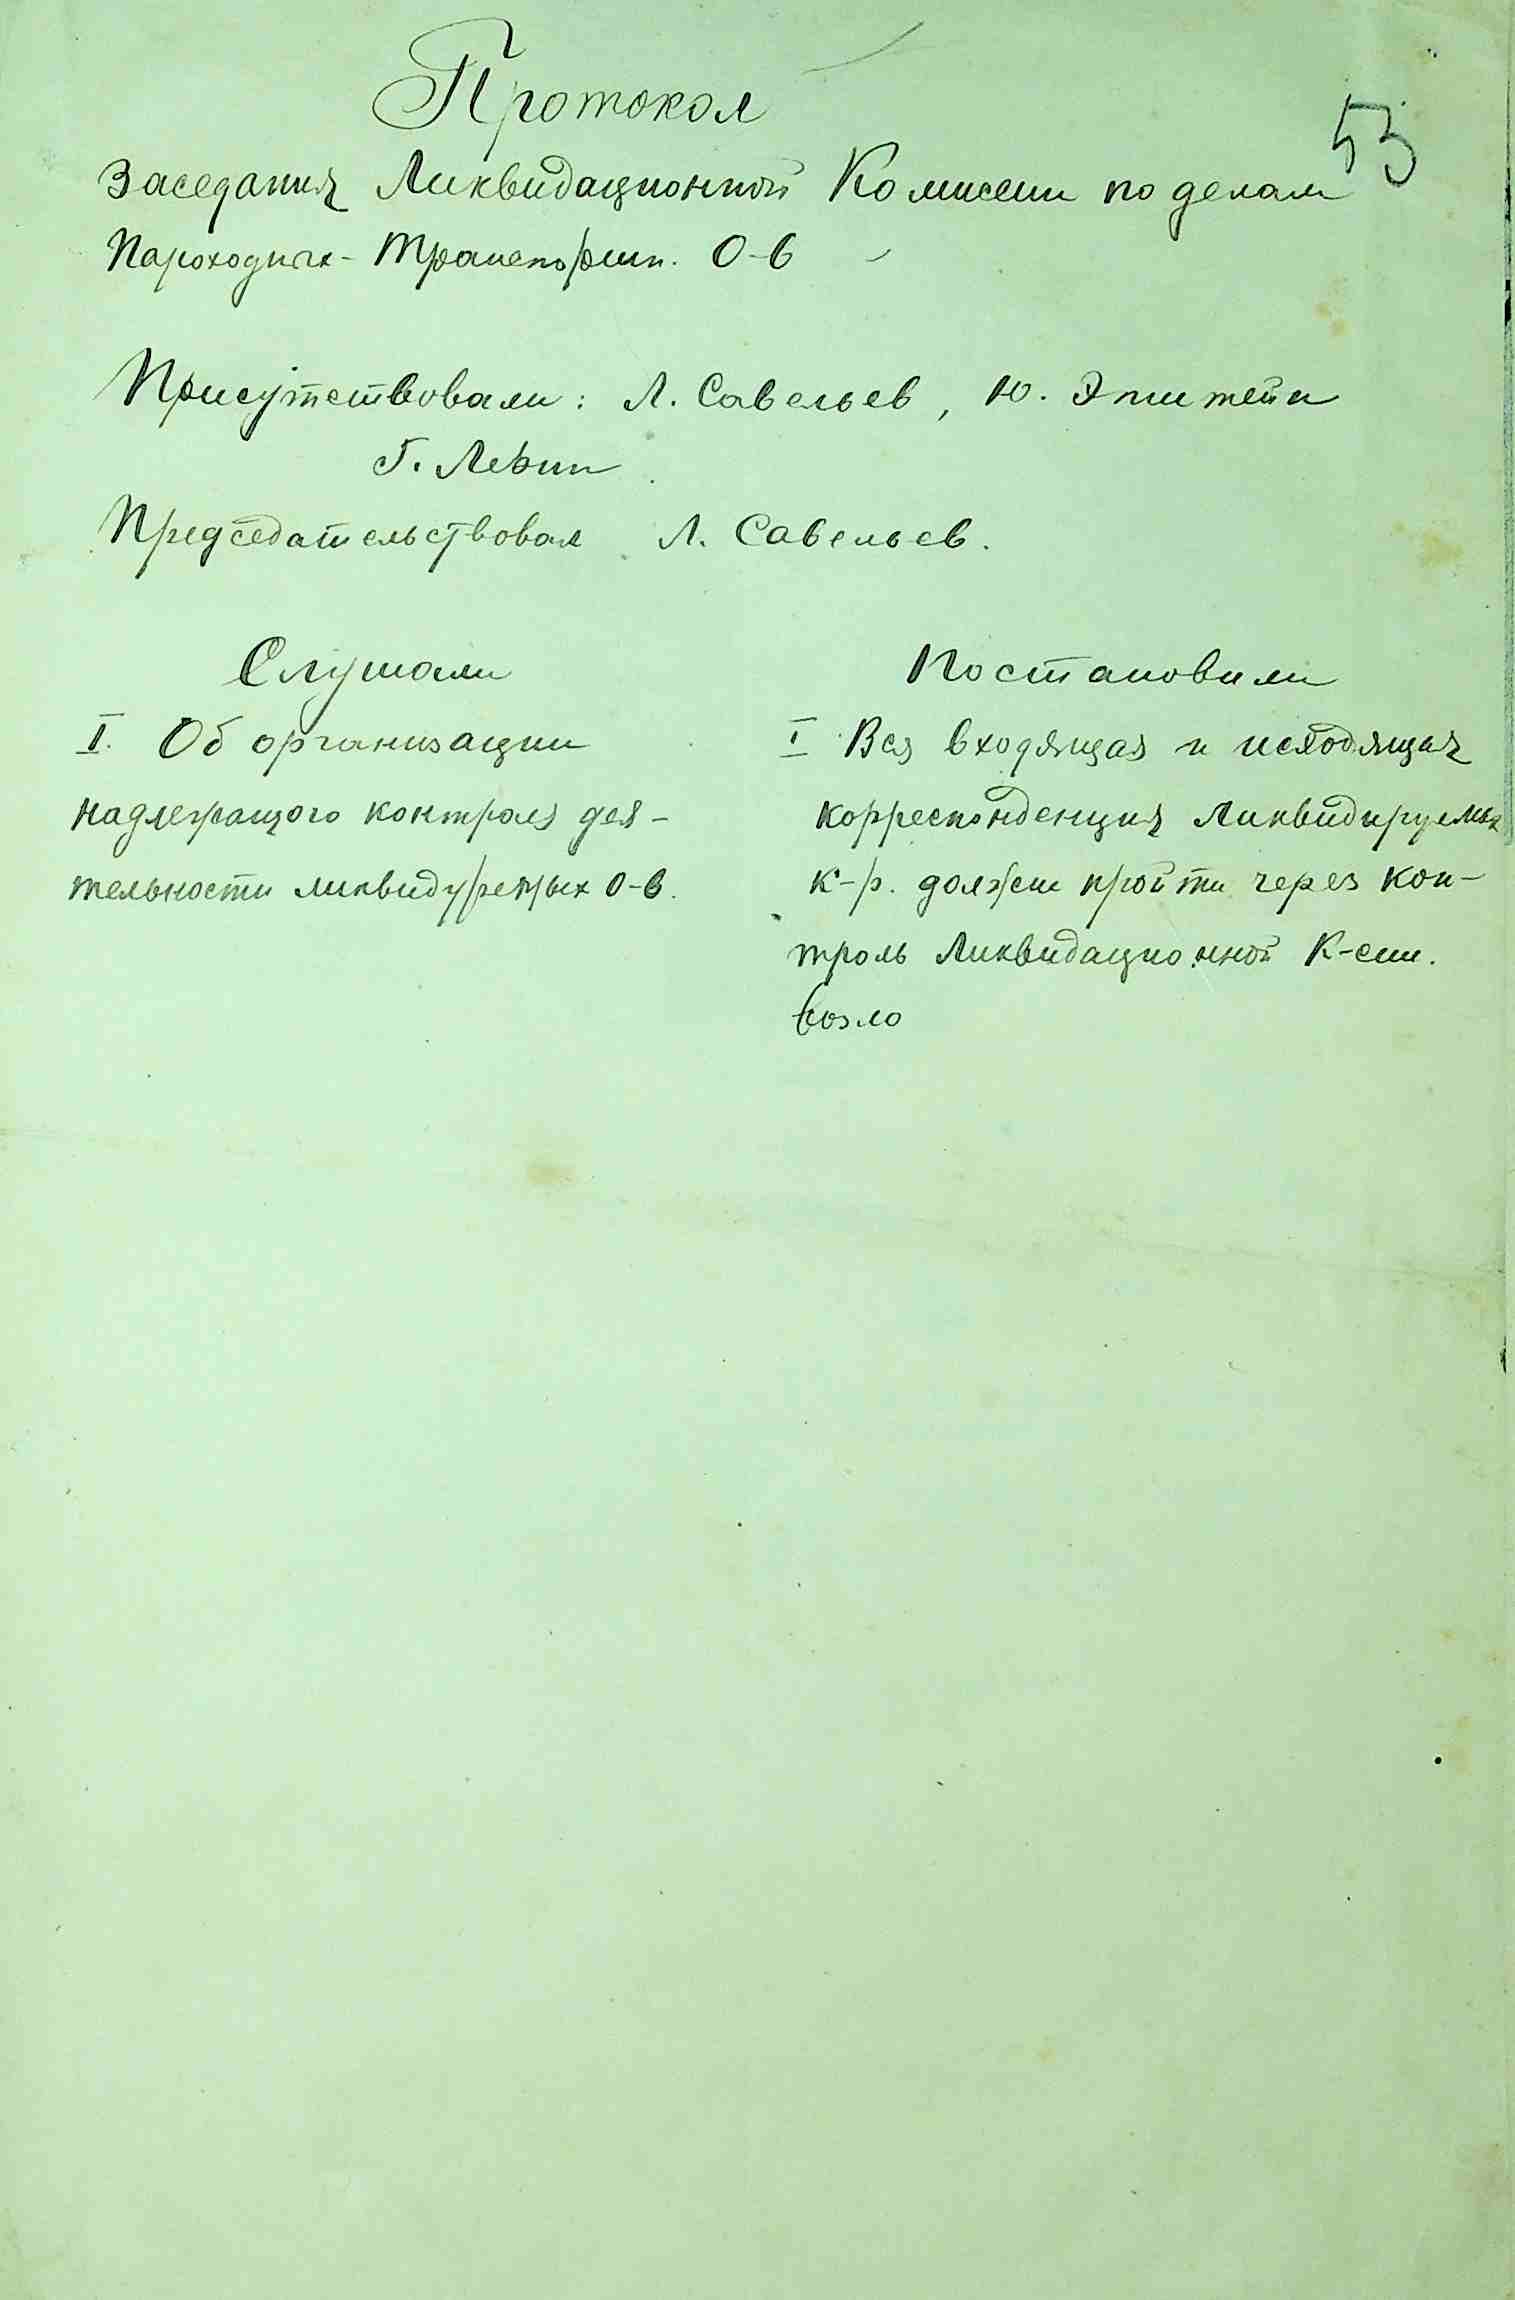 Протокол
53
Заседания Ликвидационной Комиссии по делам
Пароходных-Транспортн. О-в
Присутствовали: Л. Савельев, Ю. Эпштейн
Г. Левин
Председательствовал Л. Савельев.
Слушали
I. Об организации
надлежащого контроля дея-
тельности ликвидируемых О-в.
Постановили
I Вся входящая и исходящая
корреспонденция Ликвидируемых
к-р. должен пройти через кон-
троль Ликвидационной К-сии.
возло